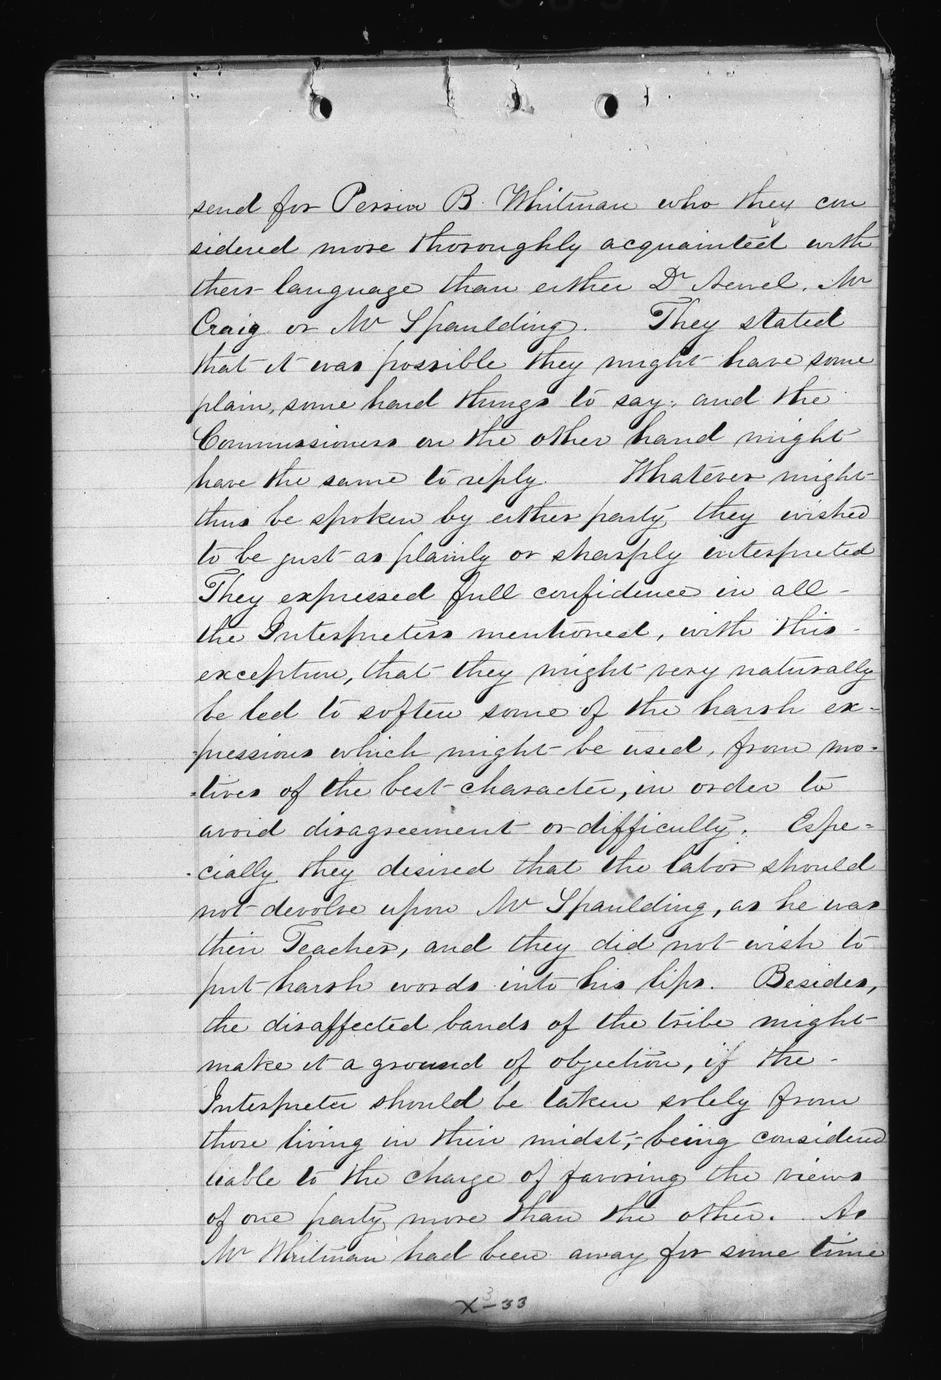 send for Perrin B. Whitman who they con
sidered more thoroughly acquainted with
their language than either Dr Newel, Mr
Craig or Mr Spaulding. They stated
that it was possible they might have some
plain, some hard things to say; and the
Commissioners on the other hand might
have the same to reply. Whatever might
thus be spoken by either party, they wished
to be just as plainly or sharply interpreted
They expressed full confidence in all -
the Interpreters mentioned, with this -
exception, that they might very naturally
be led to soften some of the harsh ex-
-pressions which might be used, from mo-
-tives of the best character, in order to
avoid disagreement or difficulty. Espe-
-cially they desired that the labor should
not devolve upon Mr Spaulding, as he was
their Teacher, and they did not wish to
put harsh words into his lips. Besides,
the disaffected bands of the tribe might
make it a ground of objection, if the -
Interpreter should be taken solely from
those living in their midst,- being considered
liable to the charge of favoring the views
of one party more than the other. As
Mr Whitman had been away for some time
X-33